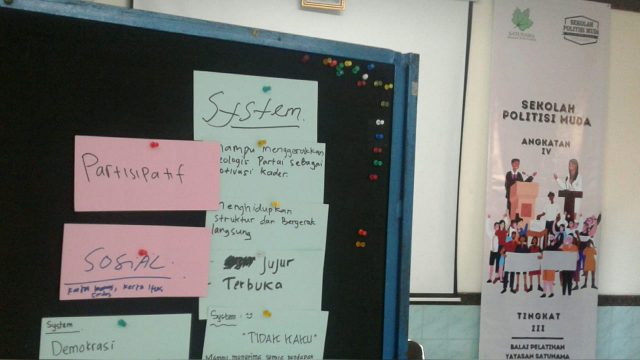 System
Partisipatif
SOSIAL
Mampu menggerakkan
ideologis Partai sebagai
motivasi kader.
Menghidupkan
struktur dan Bergerak
langsung
- Jujur
- Terbuka
System
Demokrasi
System :
"TIDAK KAKU"
Mampu menerima semua pendapat
SATUNAMA
SEKOLAH
POLITISI MUDA
SEKOLAH
POLITISI MUDA
ANGKATAN
IV
TINGKAT
III
BALAI PELATIHAN
YAYASAN SATUNAMA